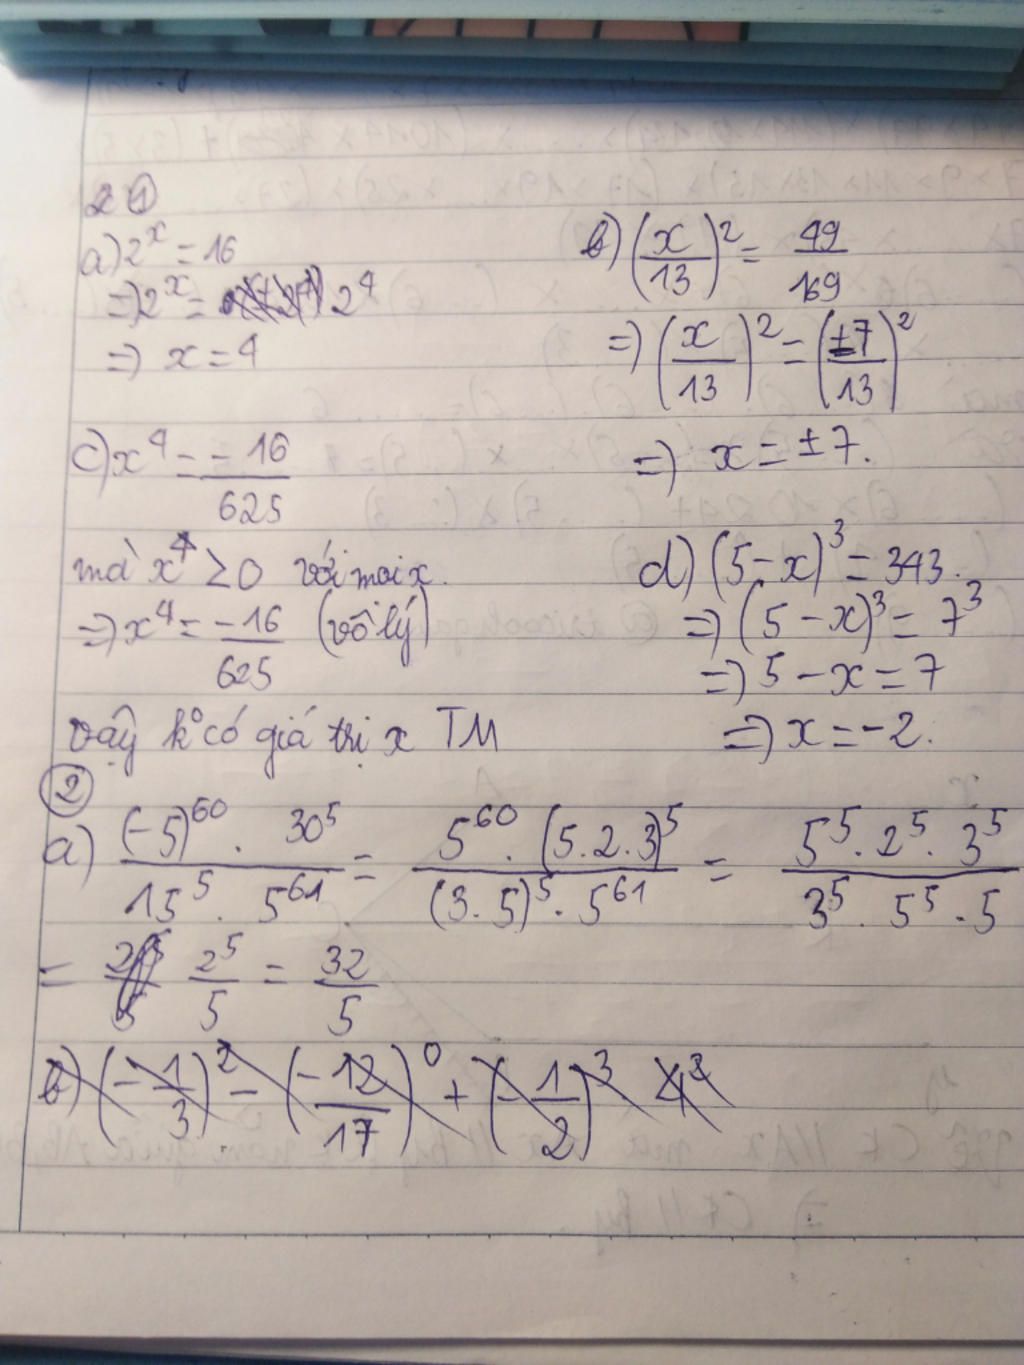 ①
a) 2^x = 16
=) 2^x = 2^4
=) x = 4
b) (x/13)^2 = 49/169
=) (x/13)^2 = (±7/13)^2
=) x = ±7.
c) x^4 = -16/625
mà x^4 ≥ 0 với mọi x.
=) x^4 = -16/625 (vô lý)
vậy k° có giá trị x TM
d) (5 - x)^3 = 343.
=) (5 - x)^3 = 7^3
=) 5 - x = 7
=) x = -2.
②
a) (-5)^60 . 30^5 / 15^5 . 5^61 = 5^60 . (5.2.3)^5 / (3.5)^5 . 5^61 = 5^5 . 2^5 . 3^5 / 3^5 . 5^5 . 5
= 2^5/5 = 32/5
b) (-1/3)^2 - (-12/17)^0 + (-1/2)^3 4^3